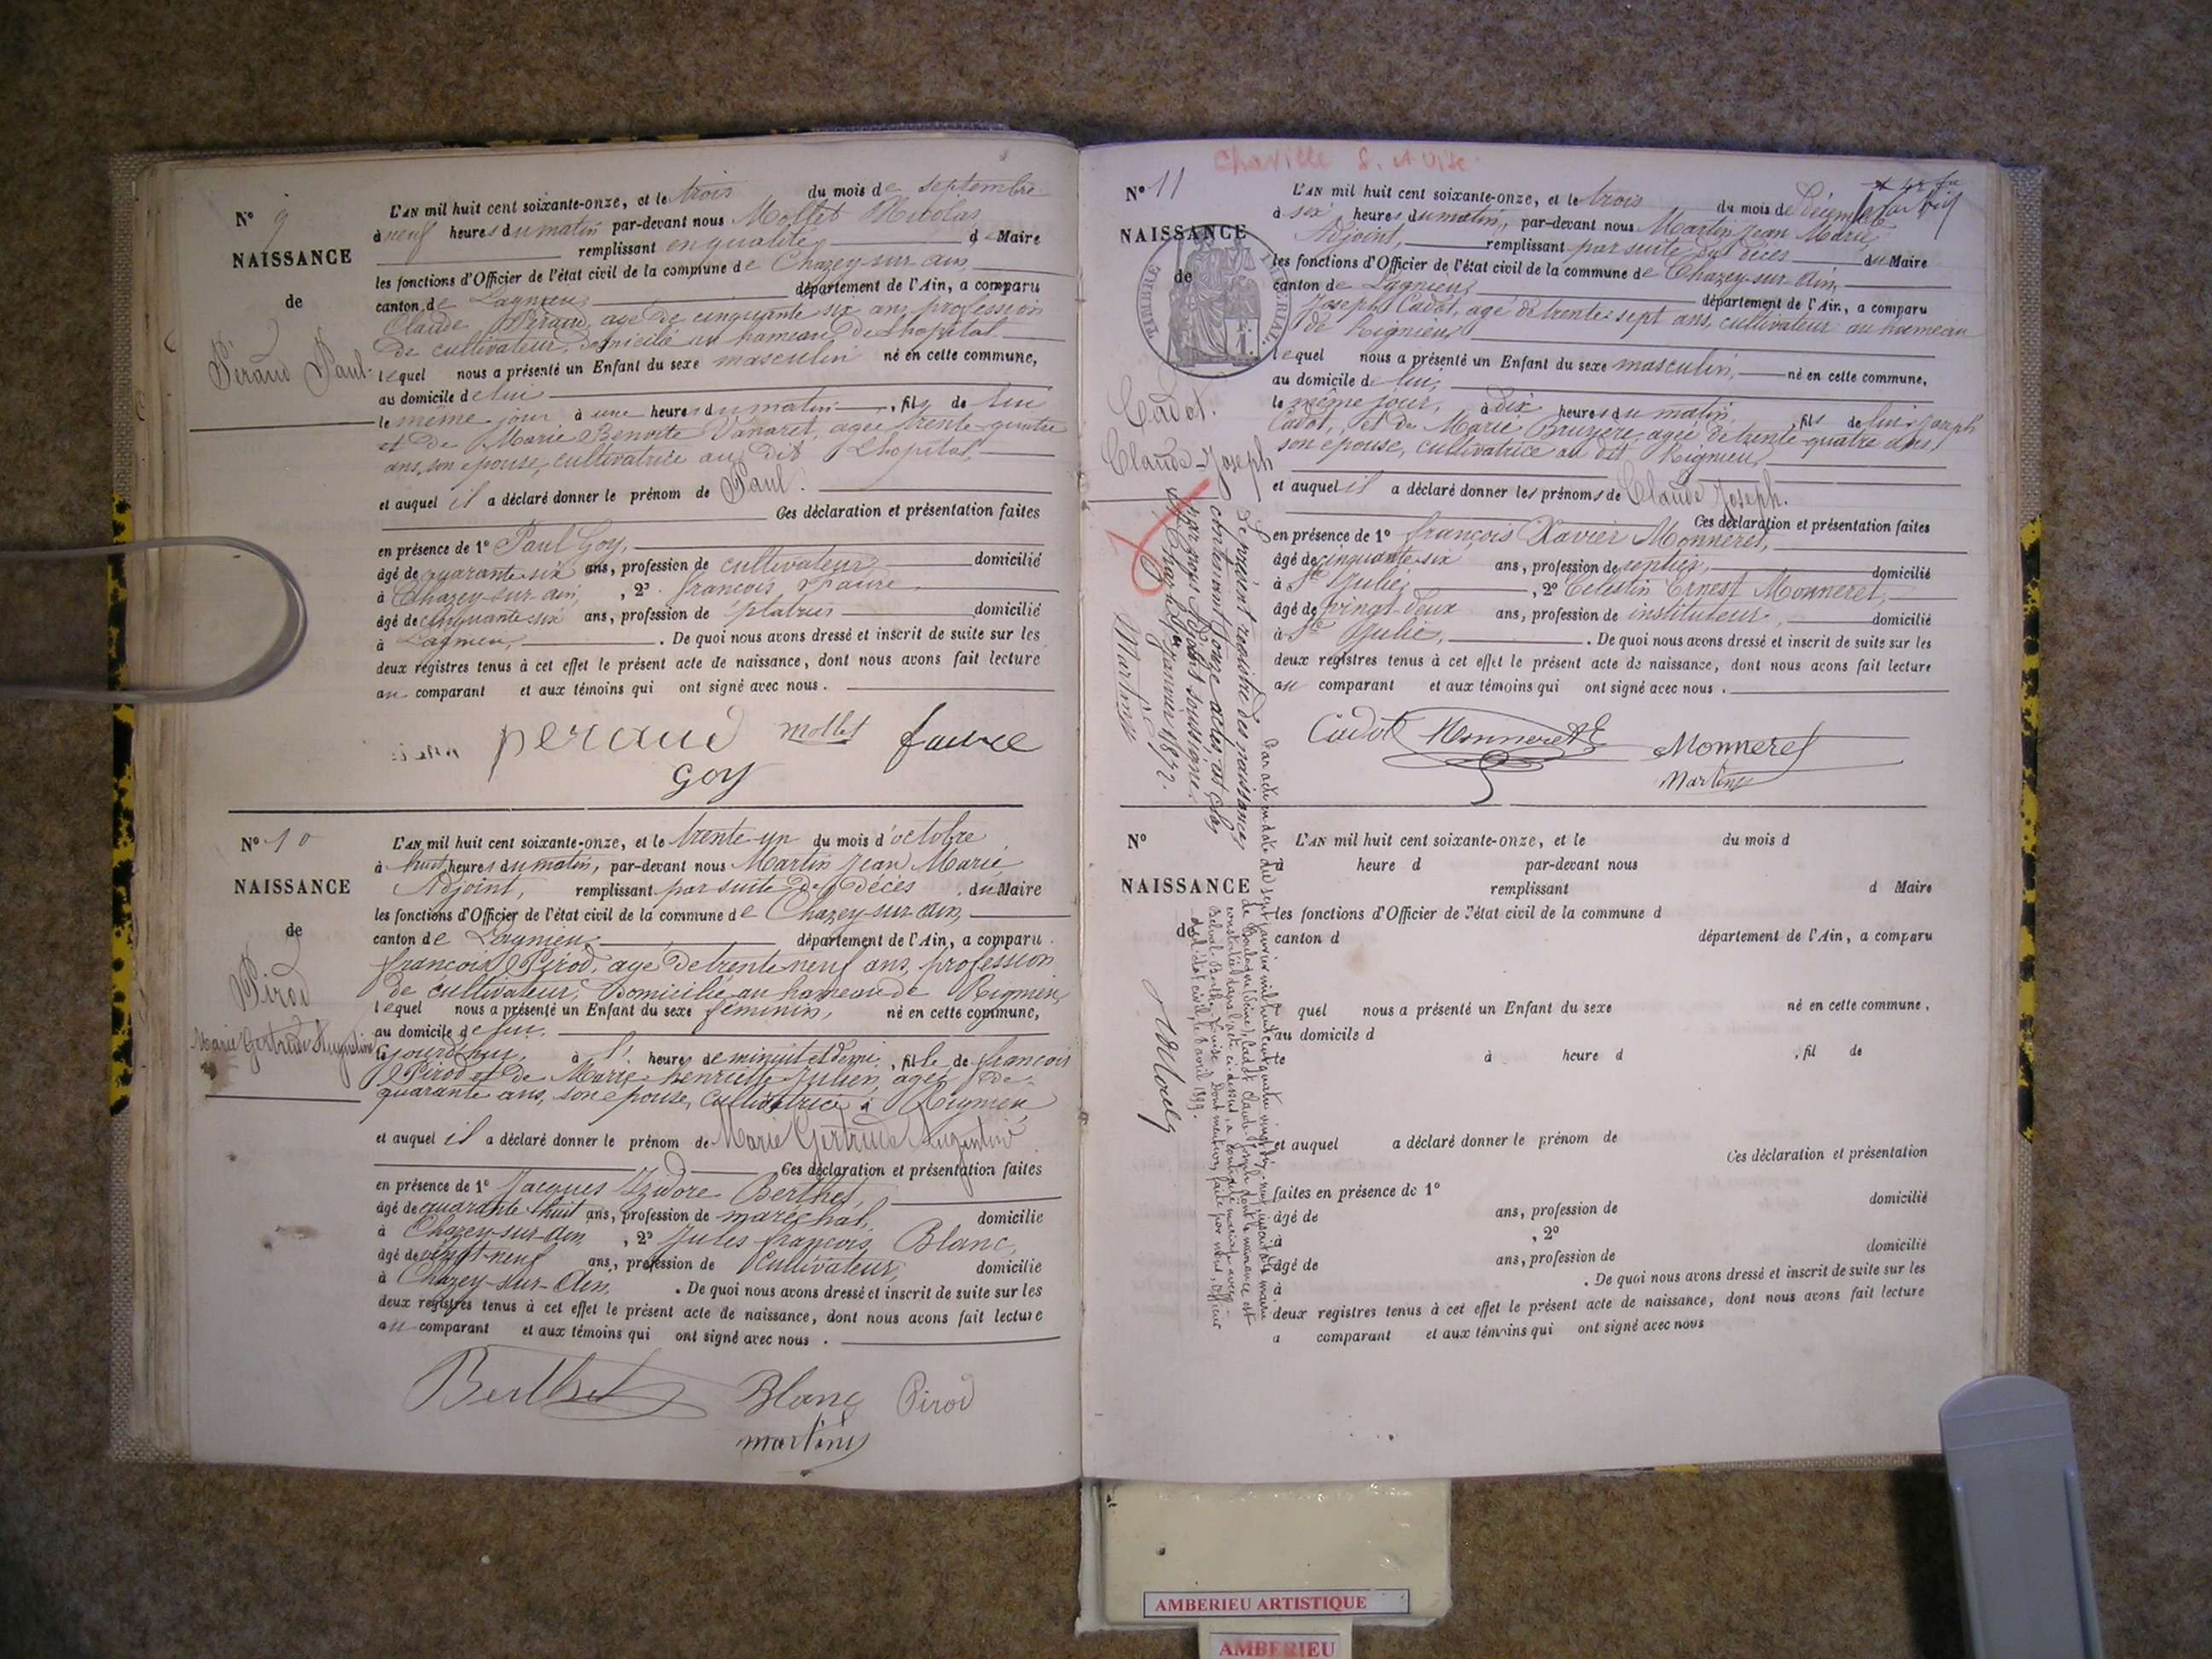 N° 9
NAISSANCE
de
Péraud Paul
L'AN mil huit cent soixante-onze, et le trois du mois de septembre
à neuf heures du matin par-devant nous Mollet Nicolas
remplissant en qualité de Maire
les fonctions d'Officier de l'état civil de la commune de Chazey-sur-ain,
canton de Lagnieu, département de l'Ain, a comparu
Claude Péraud, agé de cinquante six ans, profession
de cultivateur, domicilié au hameau de Lhopital
lequel nous a présenté un Enfant du sexe masculin né en cette commune,
au domicile de lui
le même jour à une heure du matin, fils de lui
et de Marie Benoite Vanaret, agée trente-quatre
ans, son epouse, cultivatrice au dit Lhopital,
et auquel il a déclaré donner le prénom de Paul.
Ces déclaration et présentation faites
en présence de 1° Paul Goy,
âgé de quarante-six ans, profession de cultivateur domicilié
à Chazey-sur-ain, 2° françois Faure
âgé de cinquante six ans, profession de platrier domicilié
à Lagnieu, . De quoi nous avons dressé et inscrit de suite sur les
deux registres tenus à cet effet le présent acte de naissance, dont nous avons fait lecture
au comparant et aux témoins qui ont signé avec nous.
peraud mollet faure
Goy
N° 10
NAISSANCE
de
Pirod
Marie Gertrude Augustine
L'AN mil huit cent soixante-onze, et le trente-un du mois d'octobre
à huit heures du matin, par-devant nous Martin Jean Marie
Adjoint, remplissant par suite du décès du Maire
les fonctions d'Officier de l'état civil de la commune de Chazey-sur-ain,
canton de Lagnieu département de l'Ain, a comparu
françois Pirod, agé de trente neuf ans, profession
de cultivateur, Domicilié au hameau de Rignieu
lequel nous a présenté un Enfant du sexe féminin, né en cette commune,
au domicile de lui,
jourd'hui, à heures de minuit et demi, fille de francois
Pirod et de Marie henriette Julien, agée de
quarante ans, son epouse, cultivatrice à Rignieu
et auquel il a déclaré donner le prénom de Marie Gertrude Augustine
Ces déclaration et présentation faites
en présence de 1° Jacques Izidore Berthet,
âgé de quarante huit ans, profession de maréchal, domicilié
à Chazey-sur-ain, 2° Jules françois Blanc,
âgé de vingt-neuf ans, profession de Cultivateur, domicilié
à Chazey-sur-Ain, . De quoi nous avons dressé et inscrit de suite sur les
deux registres tenus à cet effet le présent acte de naissance, dont nous avons fait lecture
au comparant et aux témoins qui ont signé avec nous .
Berthet Blanc Pirod
martin
Chaville S. et Oise
N° 11
NAISSANCE
de
TIMBRE IMPÉRIAL
Cadot.
Claude-Joseph
L'AN mil huit cent soixante-onze, et le trois du mois de Décembre
à six heures du matin, par-devant nous Martin Jean Marie
Adjoint, remplissant par suite du décès du Maire
les fonctions d'Officier de l'état civil de la commune de Chazey-sur-Ain,
canton de Lagnieu, département de l'Ain, a comparu
Joseph Cadot, agé de trente-sept ans, cultivateur au hameau
de Rignieu,
lequel nous a présenté un Enfant du sexe masculin, né en cette commune,
au domicile de lui,
le même jour, à dix heures du matin, fils de lui Joseph
Cadot, et de Marie Bruyere, agée de trente-quatre ans,
son epouse, cultivatrice au dit Rignieu,
et auquel il a déclaré donner les prénoms de Claude Joseph.
Ces déclaration et présentation faites
en présence de 1° françois Xavier Monneret,
âgé de cinquante-six ans, profession de rentier, domicilié
à Ste Julie, 2° Celestin Ernest Monneret,
âgé de vingt-deux ans, profession de instituteur, domicilié
à Ste Julie, . De quoi nous avons dressé et inscrit de suite sur les
deux registres tenus à cet effet le présent acte de naissance, dont nous avons fait lecture
au comparant et aux témoins qui ont signé avec nous .
Cadot Monneret E Monneret
Martin
Le présent registre des naissances
contenant onze actes, est clos
par nous adjoint soussigné.
Chazey janvier 1872.
Martin
Par acte en date du sept janvier mil huit cent quatre vingt dix neuf, mairie
de Boulogne (Seine), Cadot Claude Joseph dont la naissance est
constatée dans l'acte ci-dessus, a contracté mariage avec
Berthe Louise. Dont mention faite par nous, officier
de l'état civil, le 8 avril 1899.
N°
NAISSANCE
de
L'AN mil huit cent soixante-onze, et le du mois d
à heure d par-devant nous
remplissant d Maire
les fonctions d'Officier de l'état civil de la commune d
canton d département de l'Ain, a comparu
quel nous a présenté un Enfant du sexe né en cette commune,
au domicile d
le à heure d , fil de
et auquel a déclaré donner le prénom de
Ces déclaration et présentation
faites en présence de 1° domicilié
âgé de ans, profession de
à , 2°
âgé de ans, profession de domicilié
à . De quoi nous avons dressé et inscrit de suite sur les
deux registres tenus à cet effet le présent acte de naissance, dont nous avons fait lecture
a comparant et aux témoins qui ont signé avec nous
AMBERIEU ARTISTIQUE
AMBERIEU